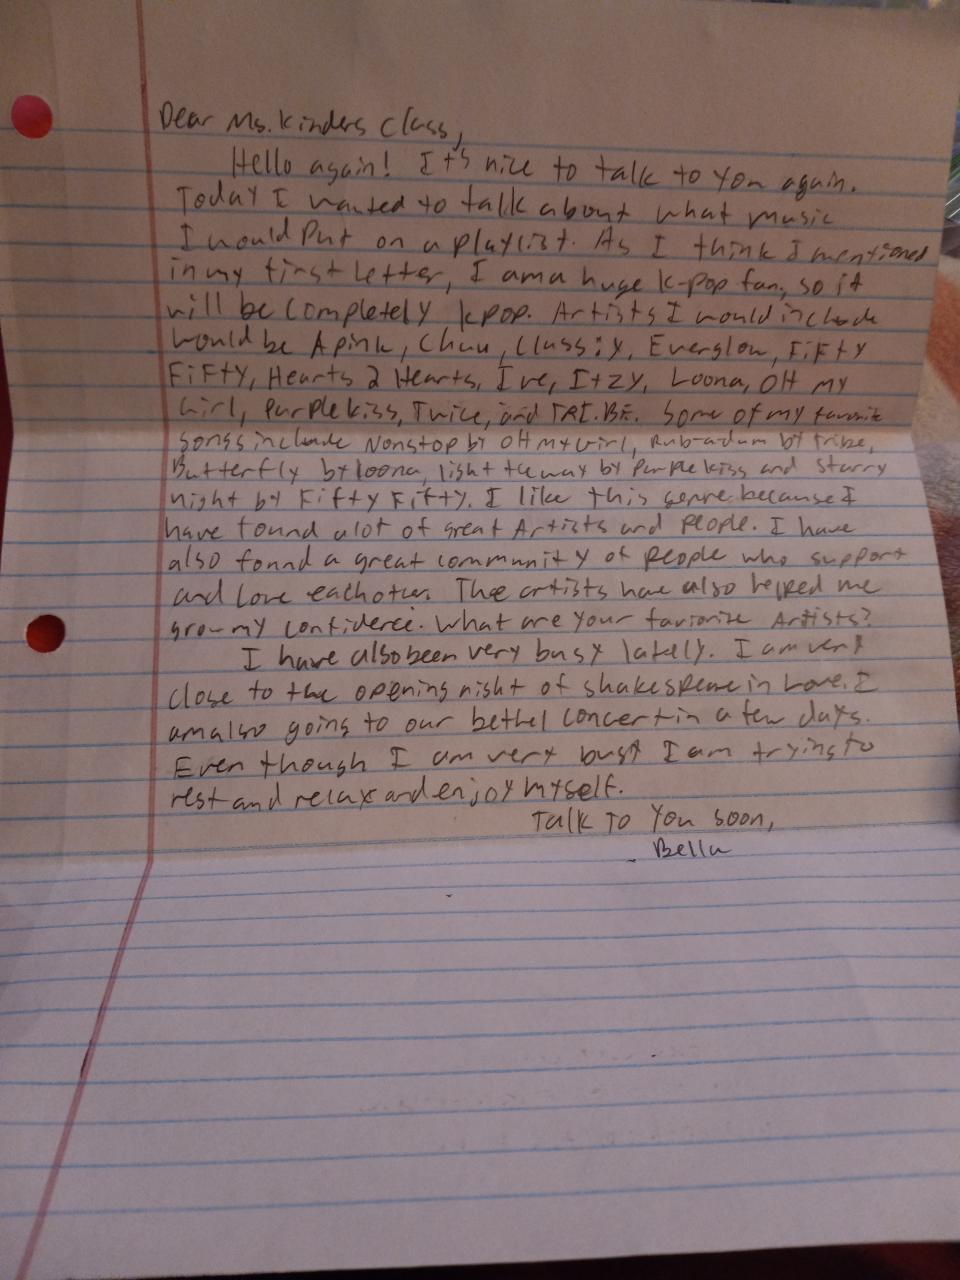 Dear Ms. Kinders Class,
Hello again! It's nice to talk to you again.
Today I wanted to talk about what music
I would Put on a playlist. As I think I mentioned
in my first letter, I am a huge K-pop fan, so it
will be completely kpop. Artists I would include
would be Apink, Chuu, Class:y, Everglow, FiFty
FiFty, Hearts 2 Hearts, Ive, Itzy, Loona, OH my
Girl, Purple kiss, Twice, and TRI.BE. Some of my favorite
songs include Nonstop by OH my Girl, Rub-a-dum by tribe,
Butterfly by loona, light the way by Purple kiss and Starry
night by Fifty Fifty. I like this genre because I
have found alot of great Artists and people. I have
also found a great community of people who support
and love eachother. The artists have also helped me
grow my confidence. What are your favorite Artists?
I have also been very busy lately. I am very
close to the opening night of Shakespeare in Love. I
am also going to our bethel concert in a few days.
Even though I am very busy I am trying to
rest and relax and enjoy myself.
Talk To You soon,
Bella